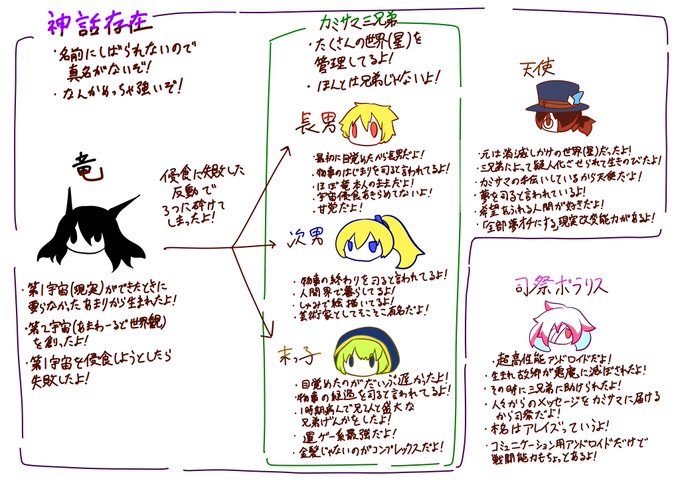 神話存在
・名前にしばられないので
真名がないぞ!
・なんかめっちゃ強いぞ!
竜
侵食に失敗した
反動で
3つに砕けて
しまったよ!
・第1宇宙(現実)ができたときに
要らなかったあまりから生まれたよ!
・第2宇宙(あまわーるど世界観)
を創ったよ!
・第1宇宙を侵食しようとしたら
失敗したよ!
カミサマ三兄弟
・たくさんの世界(星)を
管理してるよ!
・ほんとは兄弟じゃないよ!
長男
・最初に目覚めたから長男だよ!
・物事のはじまりを司ると言われてるよ!
・ほぼ竜本人のままだよ!
・宇宙侵食あきらめてないよ!
・甘党だよ!
次男
・物事の終わりを司ると言われてるよ!
・人間界で暮らしてるよ!
・しゅみで絵描いてるよ!
・芸術家としてもそこそこ有名だよ!
末っ子
・目覚めたのがだいぶ遅かったよ!
・物事の経過を司ると言われてるよ!
・1時期病んで兄2人と盛大な
兄弟げんかをしたよ!
・運ゲー系最強だよ!
・金髪じゃないのがコンプレックスだよ!
天使
・元は消滅しかけの世界(星)だったよ!
・三兄弟によって擬人化させられて生きのびたよ!
・カミサマの手伝いしているから天使だよ!
・夢を司ると言われているよ!
・希望あふれる人間が好きだよ!
・「全部夢オチにする」現実改変能力があるよ!
司祭ポラリス
・超高性能アンドロイドだよ!
・生まれ故郷が悪魔に滅ぼされたよ!
・その時に三兄弟に助けられたよ!
・人々からのメッセージをカミサマに届ける
から司祭だよ!
・本名はアレイズっていうよ!
・コミュニケーション用アンドロイドだけど
戦闘能力もちょっとあるよ!